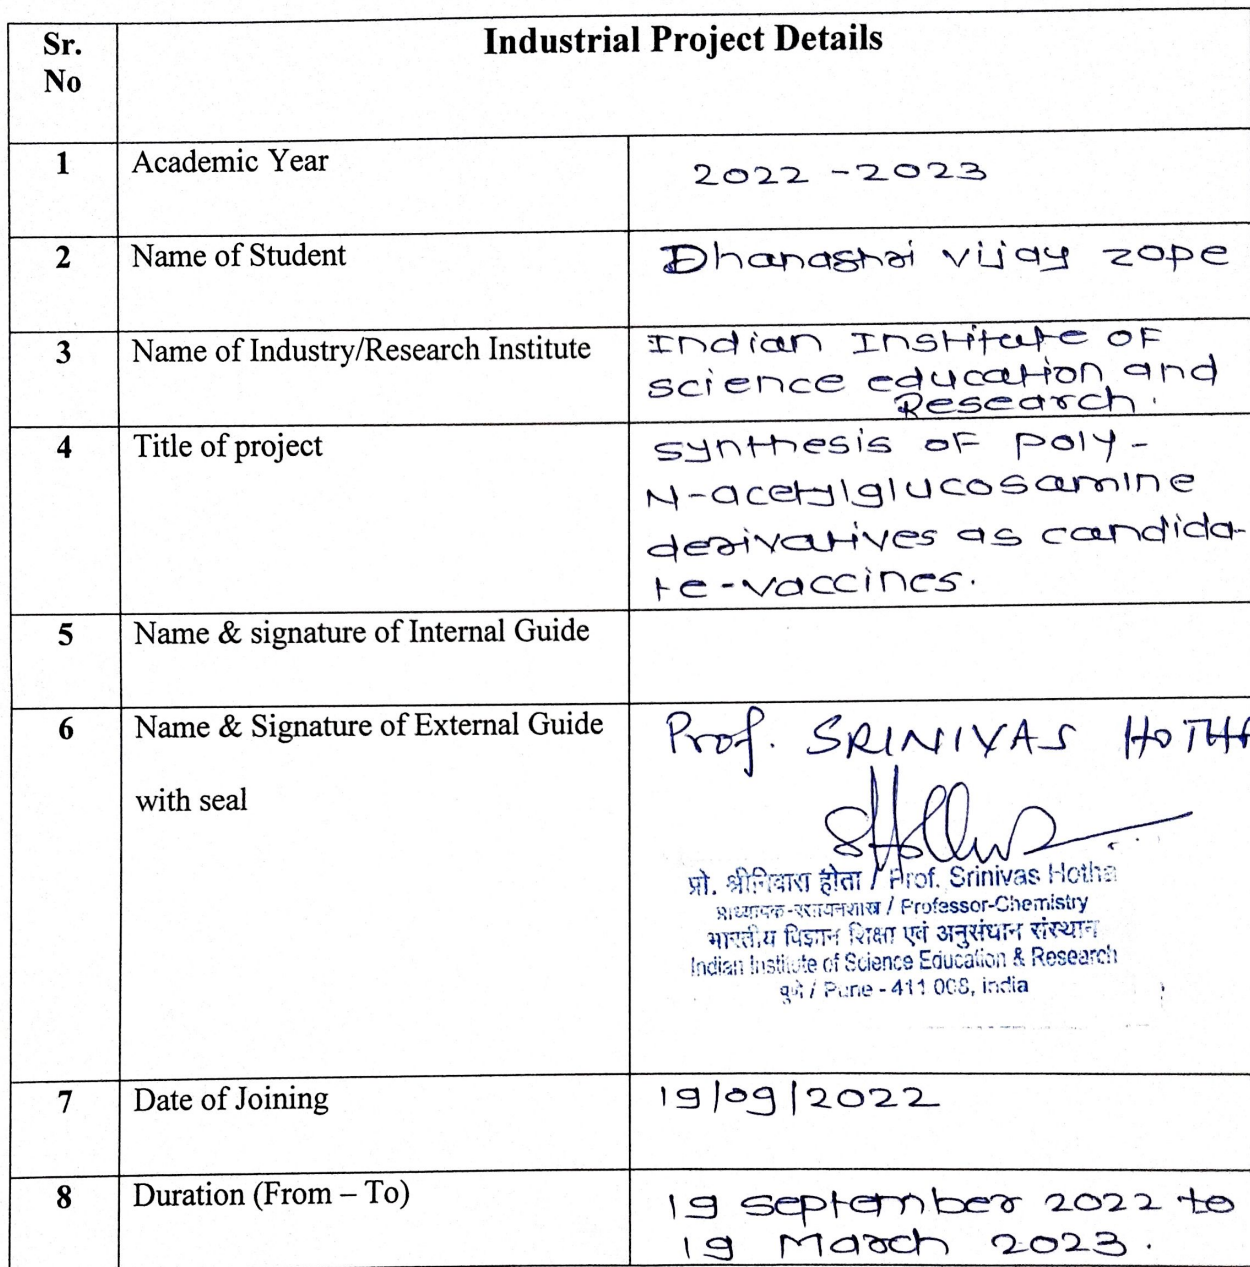 Sr. No
Industrial Project Details
1
Academic Year
2022 - 2023
2
Name of Student
Dhanashri vijay zope
3
Name of Industry/Research Institute
Indian Institute of
science education and
Research.
4
Title of project
synthesis of poly-
N-acetylglucosamine
derivatives as candida-
te-vaccines.
5
Name & signature of Internal Guide
6
Name & Signature of External Guide
with seal
Prof. SRINIVAS HOTHA
प्रो. श्रीनिवास होता / Prof. Srinivas Hotha
प्राध्यापक-रसायनशास्त्र / Professor-Chemistry
भारतीय विज्ञान शिक्षा एवं अनुसंधान संस्थान
Indian Institute of Science Education & Research
पुणे / Pune - 411 008, India
7
Date of Joining
19/09/2022
8
Duration (From – To)
19 september 2022 to
19 March 2023.